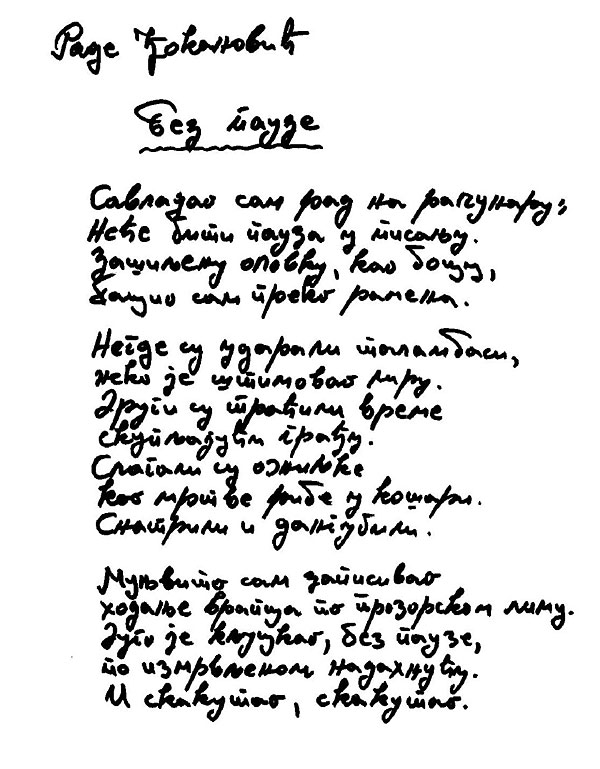 Раде Ђокановић
Без паузе
Савладао сам рад на рачунару;
Неће бити пауза у писању.
Зашиљену оловку, као боцу,
бацио сам преко рамена.
Негде су ударали таламбаси,
неко је штимовао лиру.
Други су тратили време
скупљајући грађу.
Слагали су ожиљке
као мртве рибе у кошари.
Снатрили и дангубили.
Муњевито сам записивао
ходање врапца по прозорском лиму.
Дуго је кљуцкао, без паузе,
по измрвљеном надахнућу.
И скакутао, скакутао.